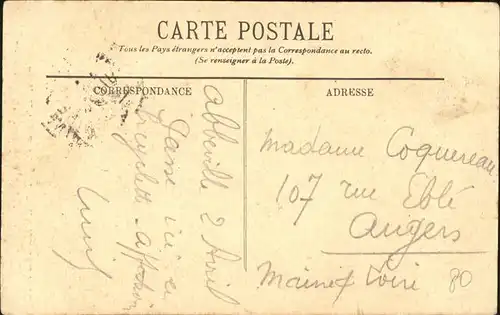 CARTE POSTALE
Tous les Pays étrangers n'acceptent pas la Correspondance au recto.
(Se renseigner à la Poste).
CORRESPONDANCE
Abbeville 2 Avril
Passe ici en
bicyclette
ADRESSE
Madame Coquereau
107 rue Eblé
Angers
Maine et Loire
80